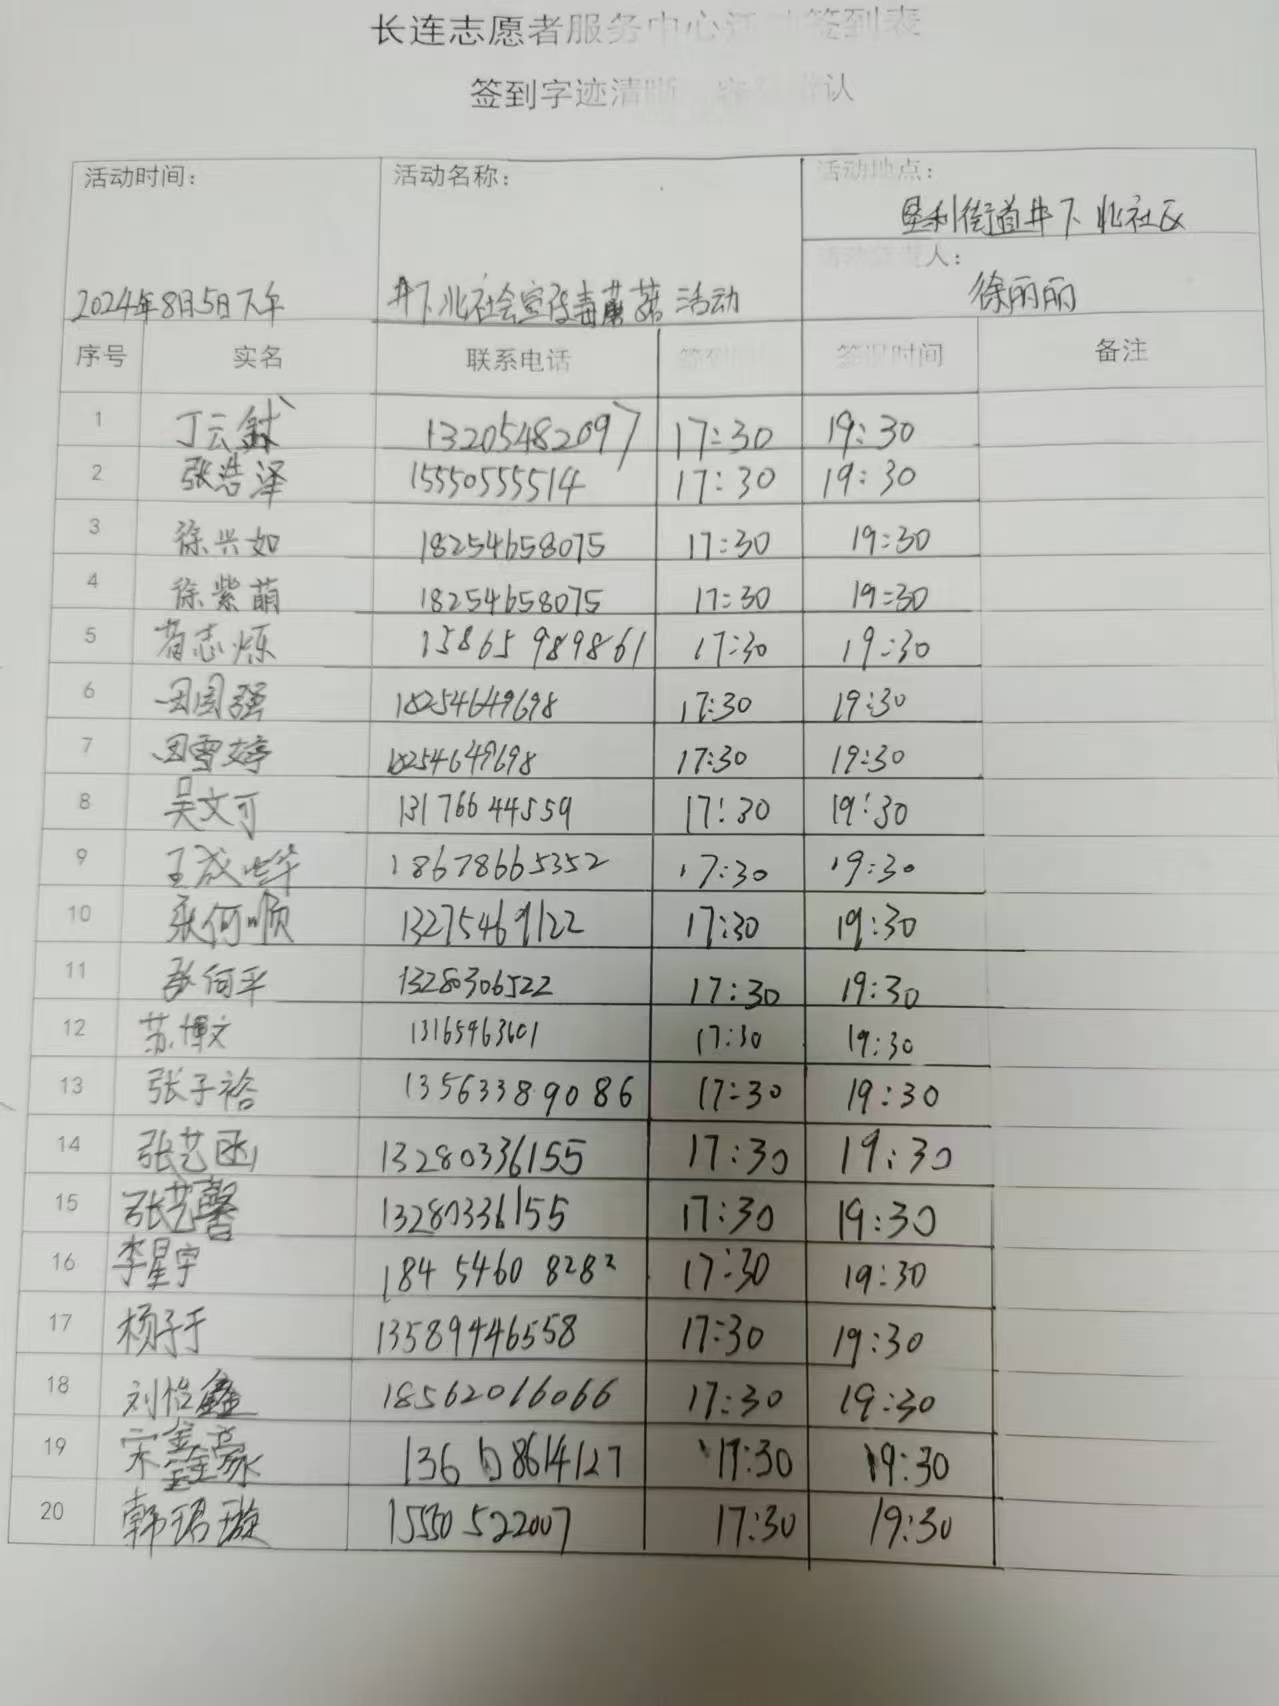 长连志愿者服务中心活动签到表
签到字迹清晰 认
活动时间： 活动名称： 活动地点：
垦利街道井下北社区
人：
2024年8月5日下午 井下北社会宣传毒蘑菇活动 徐丽丽
序号 实名 联系电话 签到时间 签退时间 备注
1 丁云 13205482097 17:30 19:30
2 张浩泽 15550555514 17:30 19:30
3 徐兴如 18254658075 17:30 19:30
4 徐紫萌 18254658075 17:30 19:30
5 志烁 15865989861 17:30 19:30
6 田国强 18254649698 17:30 19:30
7 田雪婷 18254649698 17:30 19:30
8 吴文可 13176644559 17:30 19:30
9 王成烨 18678665352 17:30 19:30
10 张何顺 13275469122 17:30 19:30
11 张何平 13280306522 17:30 19:30
12 苏博文 13165963601 17:30 19:30
13 张子裕 13563389086 17:30 19:30
14 张艺函 13280336155 17:30 19:30
15 张艺馨 13280336155 17:30 19:30
16 李星宇 184 5460 8282 17:30 19:30
17 杨子于 13589446558 17:30 19:30
18 刘怡鑫 18562016066 17:30 19:30
19 宋鑫豪 17:30 19:30
20 韩珺璇 15550522007 17:30 19:30